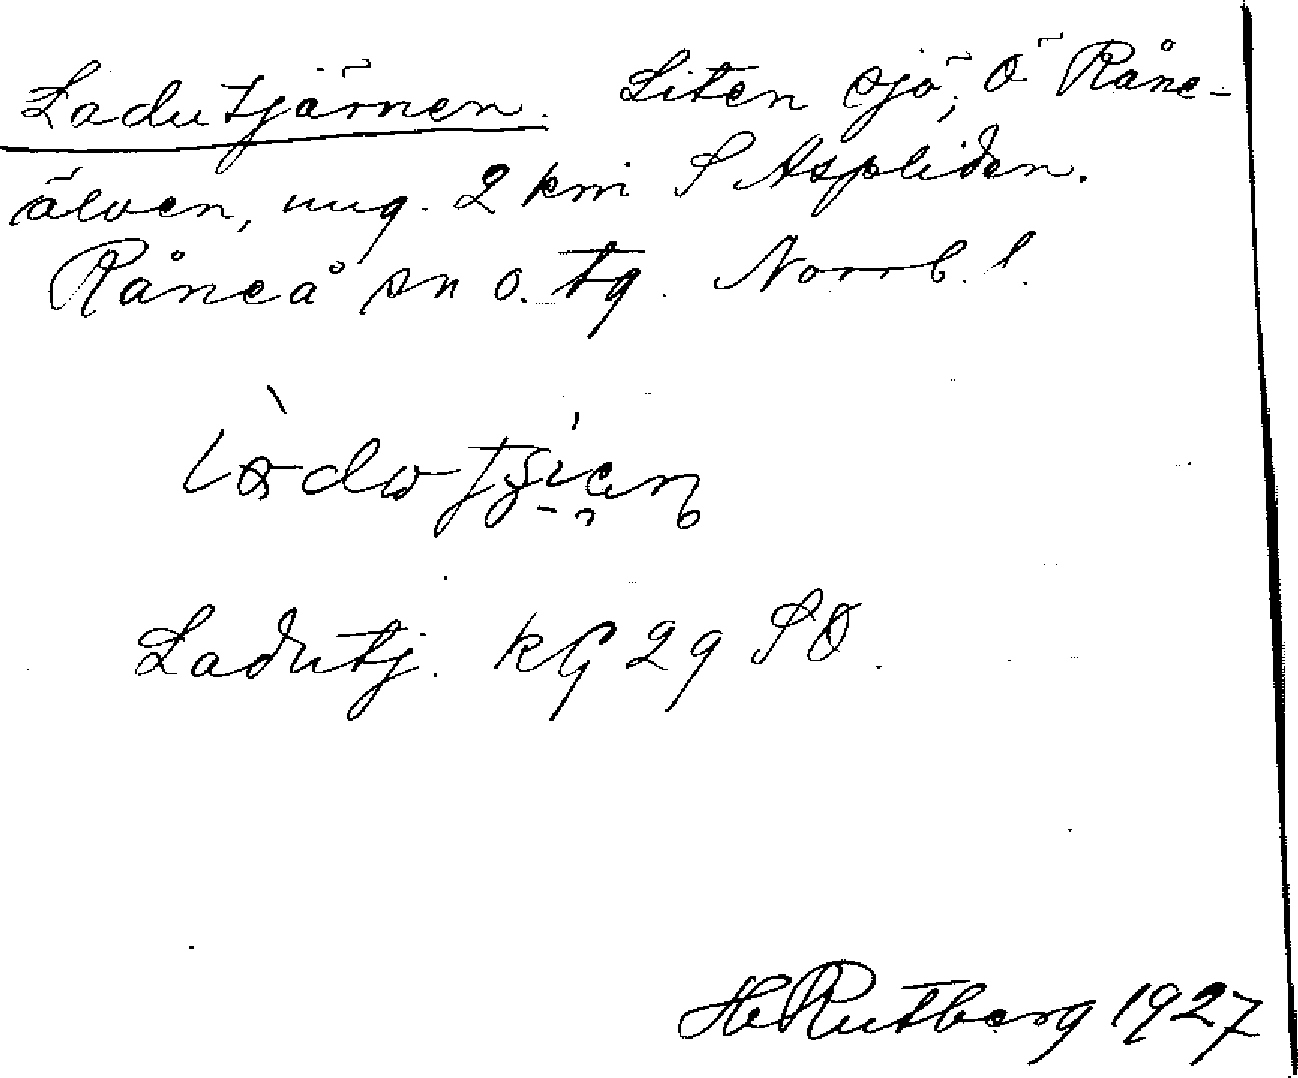 Ladutjärnen. Liten sjö, Ö Råne-
älven, ung. 2 km S Aspliden.
Råneå sn o. tg. Norrb. l.
Ladutj. kG 29 SO.
H Rutberg 1927